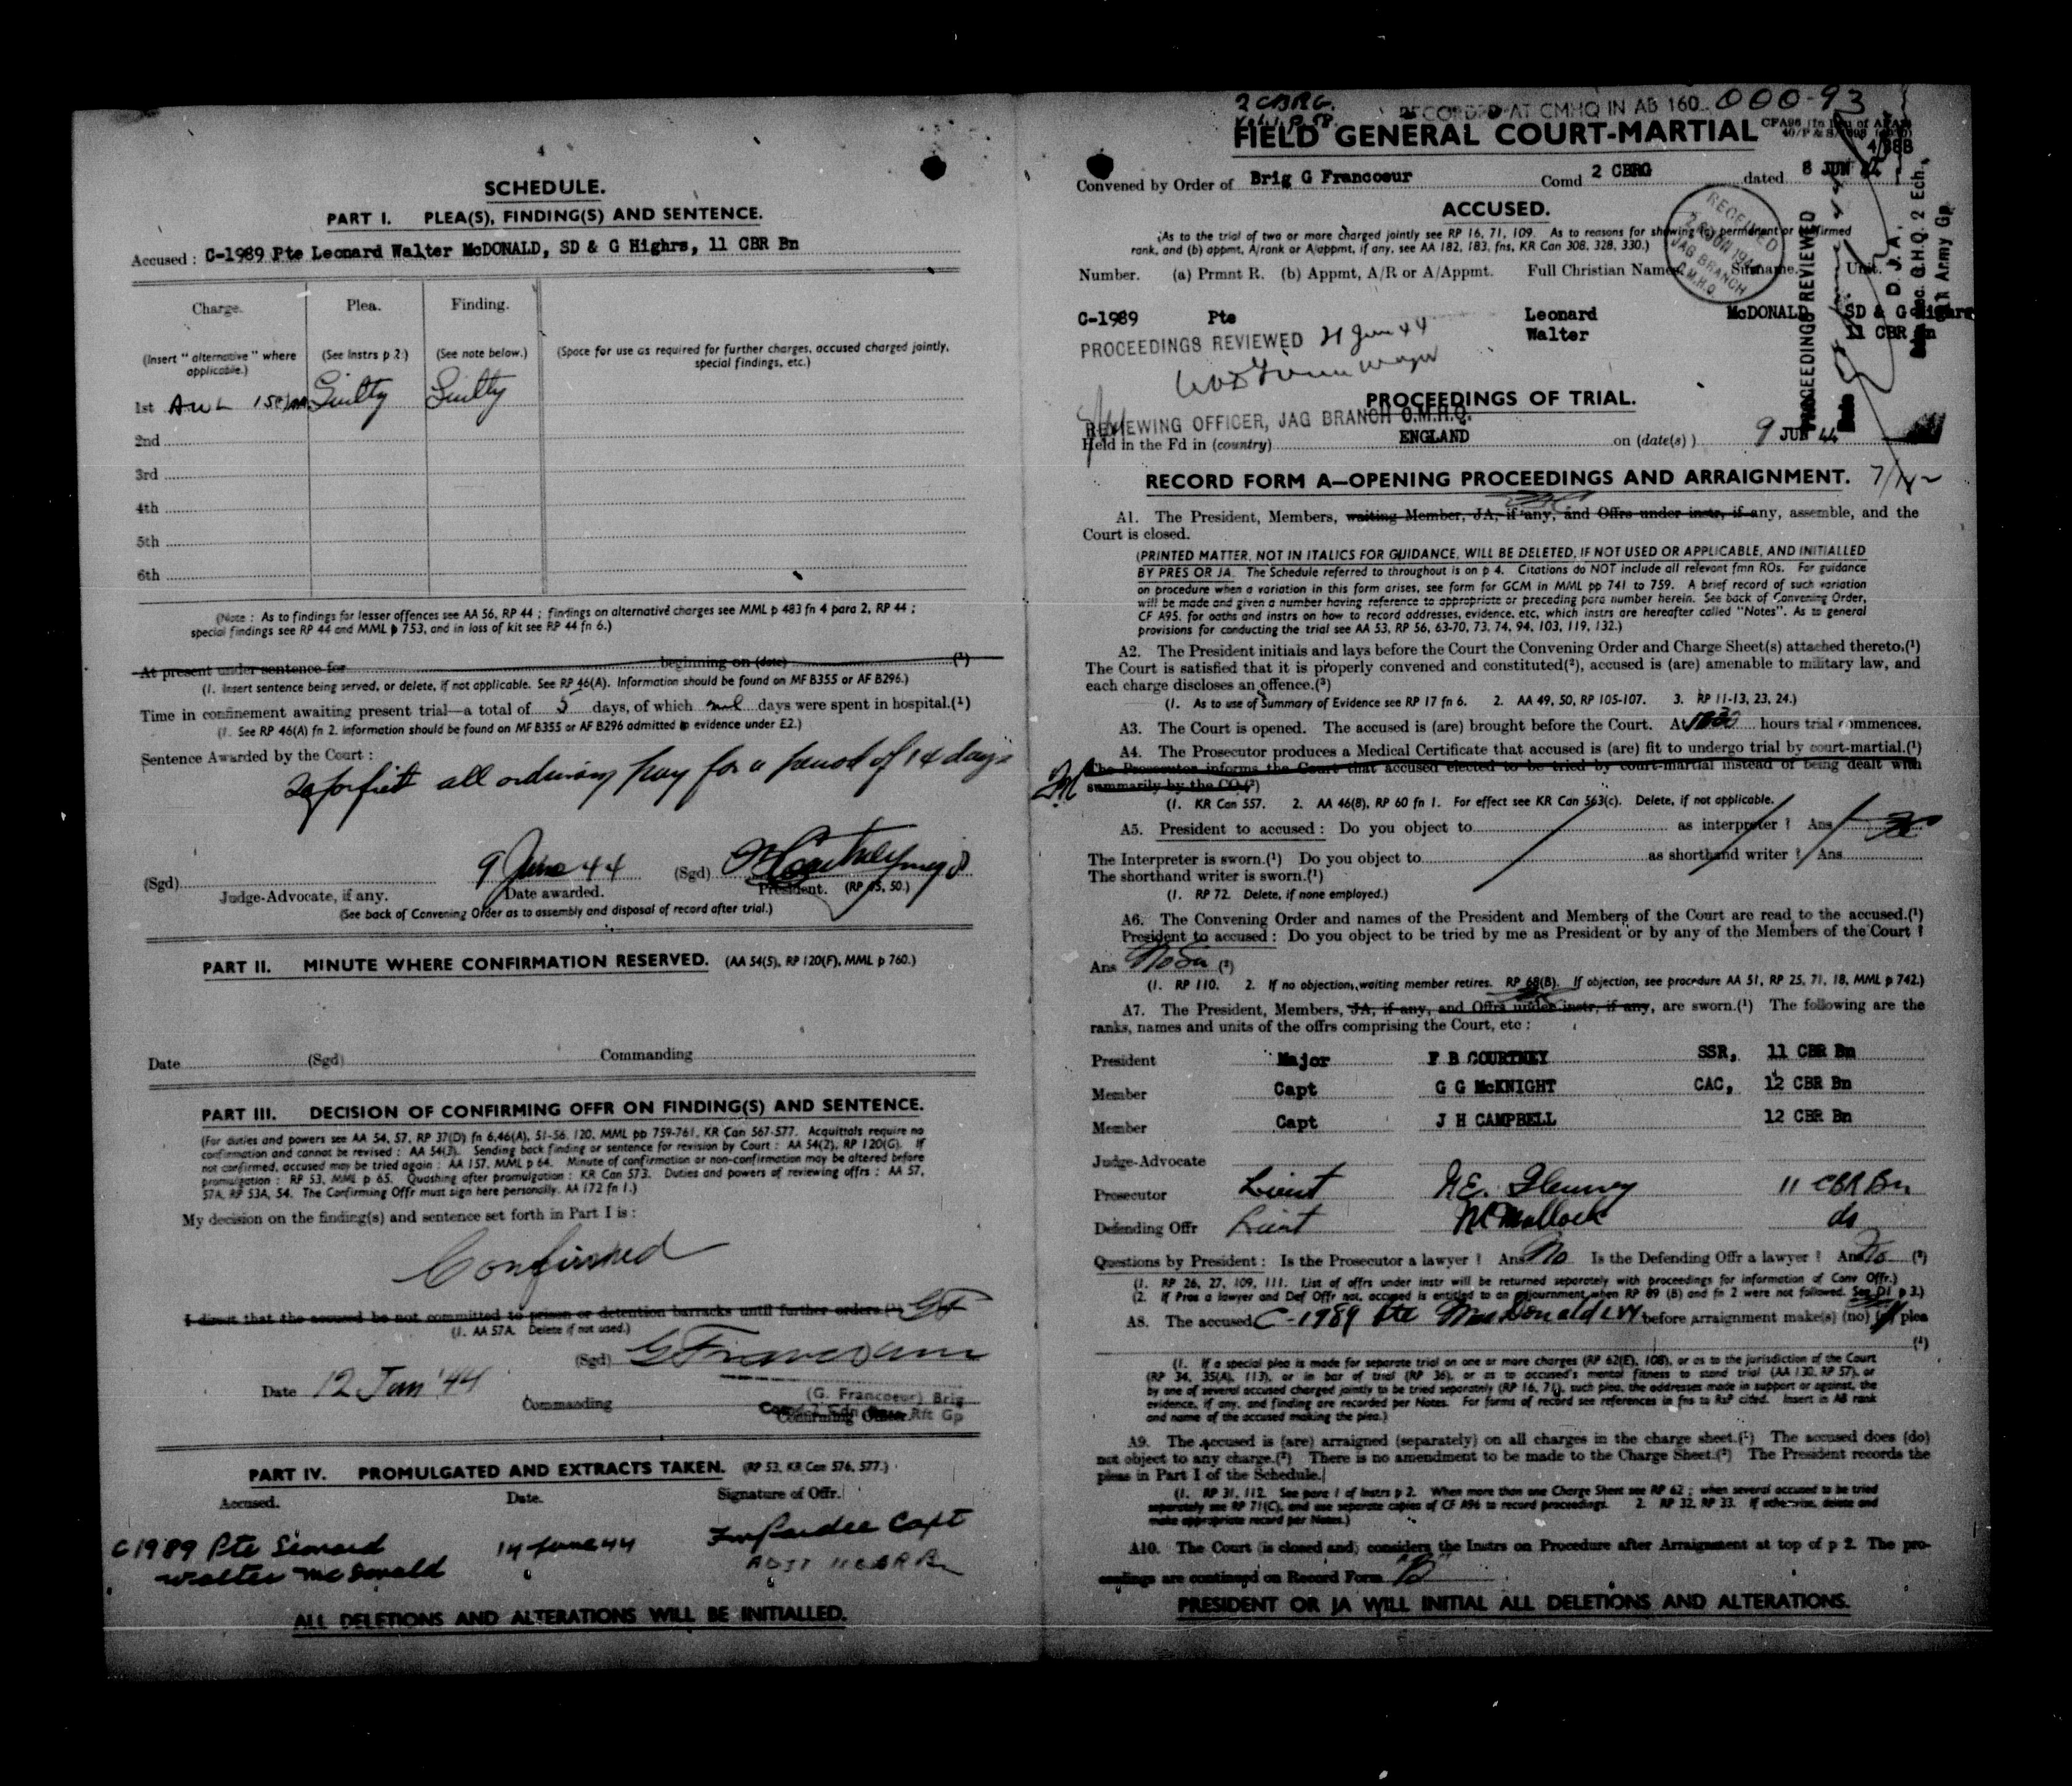 4
SCHEDULE.
PART I. PLEA(S), FINDING(S) AND SENTENCE.
Accused : C-1989 Pte Leonard Walter McDONALD, SD & G Highrs, 11 CBR Bn
Charge. Plea. Finding.
(Insert "alternative" where applicable.) (See Instrs p 2.) (See note below.) (Space for use as required for further charges, accused charged jointly, special findings, etc.)
1st AWL Guilty Guilty
2nd
3rd
4th
5th
6th
(Note : As to findings for lesser offences see AA 56, RP 44 ; findings on alternative charges see MML p 483 fn 4 para 2, RP 44 ;
special findings see RP 44 and MML p 753, and in loss of kit see RP 44 fn 6.)
At present under sentence for beginning on (date) (1)
(1. Insert sentence being served, or delete, if not applicable. See RP 46(A). Information should be found on MF B355 or AF B296.)
Time in confinement awaiting present trial—a total of 5 days, of which nil days were spent in hospital.(1)
(1. See RP 46(A) fn 2. Information should be found on MF B355 or AF B296 admitted in evidence under E2.)
Sentence Awarded by the Court :
To forfeit all ordinary pay for a period of 14 days
(Sgd) 9 June 44 (Sgd)
Judge-Advocate, if any. Date awarded. President. (RP 45, 50.)
(See back of Convening Order as to assembly and disposal of record after trial.)
PART II. MINUTE WHERE CONFIRMATION RESERVED. (AA 54(5), RP 120(F), MML p 760.)
Date (Sgd) Commanding
PART III. DECISION OF CONFIRMING OFFR ON FINDING(S) AND SENTENCE.
(For duties and powers see AA 54, 57, RP 37(D) fn 6,46(A), 51-56, 120, MML pp 759-761, KR Can 567-577. Acquittals require no
confirmation and cannot be revised : AA 54(3). Sending back finding or sentence for revision by Court : AA 54(2), RP 120(G). If
not confirmed, accused may be tried again : AA 157, MML p 64. Minute of confirmation or non-confirmation may be altered before
promulgation : RP 53, MML p 65. Quashing after promulgation : KR Can 573. Duties and powers of reviewing offrs : AA 57,
57A, RP 53A, 54. The Confirming Offr must sign here personally. AA 172 fn 1.)
My decision on the finding(s) and sentence set forth in Part I is :
Confirmed
I direct that the accused be not committed to prison or detention barracks until further orders.(1) GF
(1. AA 57A. Delete if not used.)
(Sgd) G Francoeur
Date 12 Jun '44
(G. Francoeur) Brig
Commanding Confirming Officer. Rft Gp
PART IV. PROMULGATED AND EXTRACTS TAKEN. (RP 53, KR Can 576, 577.)
Accused. Date. Signature of Offr.
C1989 Pte Leonard 14 June 44 Capt
Walter McDonald ADJT 11 CBR Bn
ALL DELETIONS AND ALTERATIONS WILL BE INITIALLED.
2 CBRG. RECORDED AT CMHQ IN AB 160 000-93
FIELD GENERAL COURT-MARTIAL
Convened by Order of Brig G Francoeur Comd 2 CBRG dated 8 JUN 44
ACCUSED.
(As to the trial of two or more charged jointly see RP 16, 71, 109. As to reasons for showing (a) permanent or confirmed
rank, and (b) appmt, A/rank or A/appmt, if any, see AA 182, 183, fns, KR Can 308, 328, 330.)
RECEIVED
JUN 1944
JAG BRANCH
C.M.H.Q.
PROCEEDINGS REVIEWED
D. J. A.
G.H.Q. 2 Ech.,
Army Gp
Number. (a) Prmnt R. (b) Appmt, A/R or A/Appmt. Full Christian Names. Surname. Unit.
C-1989 Pte Leonard McDONALD SD & G Highrs
Walter 11 CBR Bn
PROCEEDINGS REVIEWED 21 Jun 44
PROCEEDINGS OF TRIAL.
REVIEWING OFFICER, JAG BRANCH C.M.H.Q.
Held in the Fd in (country) ENGLAND on (date(s)) 9 JUN 44
RECORD FORM A—OPENING PROCEEDINGS AND ARRAIGNMENT.
A1. The President, Members, waiting Member, JA, if any, and Offrs under instr, if any, assemble, and the
Court is closed.
(PRINTED MATTER, NOT IN ITALICS FOR GUIDANCE, WILL BE DELETED, IF NOT USED OR APPLICABLE, AND INITIALLED
BY PRES OR JA. The Schedule referred to throughout is on p 4. Citations do NOT include all relevant fmn ROs. For guidance
on procedure when a variation in this form arises, see form for GCM in MML pp 741 to 759. A brief record of such variation
will be made and given a number having reference to appropriate or preceding para number herein. See back of Convening Order,
CF A95, for oaths and instrs on how to record addresses, evidence, etc, which instrs are hereafter called "Notes". As to general
provisions for conducting the trial see AA 53, RP 56, 63-70, 73, 74, 94, 103, 119, 132.)
A2. The President initials and lays before the Court the Convening Order and Charge Sheet(s) attached thereto.(1)
The Court is satisfied that it is properly convened and constituted(2), accused is (are) amenable to military law, and
each charge discloses an offence.(3)
(1. As to use of Summary of Evidence see RP 17 fn 6. 2. AA 49, 50, RP 105-107. 3. RP 11-13, 23, 24.)
A3. The Court is opened. The accused is (are) brought before the Court. At hours trial commences.
A4. The Prosecutor produces a Medical Certificate that accused is (are) fit to undergo trial by court-martial.(1)
The Prosecutor informs the Court that accused elected to be tried by court-martial instead of being dealt with
summarily by the CO.(2)
(1. KR Can 557. 2. AA 46(8), RP 60 fn 1. For effect see KR Can 563(c). Delete, if not applicable.
A5. President to accused : Do you object to as interpreter ? Ans
The Interpreter is sworn.(1) Do you object to as shorthand writer ? Ans
The shorthand writer is sworn.(1)
(1. RP 72. Delete, if none employed.)
A6. The Convening Order and names of the President and Members of the Court are read to the accused.(1)
President to accused : Do you object to be tried by me as President or by any of the Members of the Court ?
Ans No Sir (2)
(1. RP 110. 2. If no objection, waiting member retires. RP 68(B). If objection, see procedure AA 51, RP 25, 71, 18, MML p 742.)
A7. The President, Members, JA, if any, and Offrs under instr, if any, are sworn.(1) The following are the
ranks, names and units of the offrs comprising the Court, etc :
President Major F B COURTNEY SSR, 11 CBR Bn
Member Capt G G McKNIGHT CAC, 12 CBR Bn
Member Capt J H CAMPBELL 12 CBR Bn
Judge-Advocate
Prosecutor Lieut 11 CBR Bn
Defending Offr Lieut do
Questions by President : Is the Prosecutor a lawyer ? Ans No Is the Defending Offr a lawyer ? Ans No (2)
(1. RP 26, 27, 109, 111. List of offrs under instr will be returned separately with proceedings for information of Conv Offr.)
(2. If Pros a lawyer and Def Offr not, accused is entitled to an adjournment when RP 89 (B) and fn 2 were not followed. See D1 p 3.)
A8. The accused C-1989 Pte MacDonald LW before arraignment make(s) (no) plea
(1)
(1. If a special plea is made for separate trial on one or more charges (RP 62(E), 108), or as to the jurisdiction of the Court
(RP 34, 35(A), 113), or in bar of trial (RP 36), or as to accused's mental fitness to stand trial (AA 130, RP 57), or
by one of several accused charged jointly to be tried separately (RP 16, 71), such plea, the addresses made in support or against, the
evidence, if any, and finding are recorded per Notes. For forms of record see references in fns to RsP cited. Insert in A8 rank
and name of the accused making the plea.)
A9. The accused is (are) arraigned (separately) on all charges in the charge sheet.(1) The accused does (do)
not object to any charge.(2) There is no amendment to be made to the Charge Sheet.(2) The President records the
pleas in Part I of the Schedule.
(1. RP 31, 112. See para 1 of Instrs p 2. When more than one Charge Sheet see RP 62 ; when several accused to be tried
separately see RP 71(C), and use separate copies of CF A96 to record proceedings. 2. RP 32, RP 33. If otherwise, delete and
make appropriate record per Notes.)
A10. The Court (is closed and) considers the Instrs on Procedure after Arraignment at top of p 2. The pro-
ceedings are continued on Record Form "B"
PRESIDENT OR JA WILL INITIAL ALL DELETIONS AND ALTERATIONS.